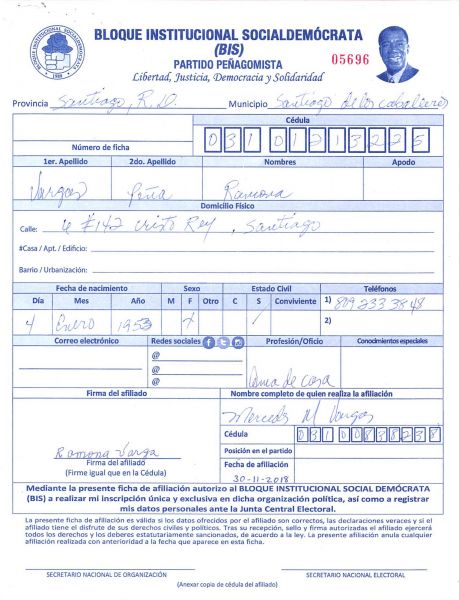 BLOQUE INSTITUCIONAL SOCIALDEMÓCRATA
(BIS)
PARTIDO PEÑAGOMISTA
05696
Libertad, Justicia, Democracia y Solidaridad
BLOQUE INSTITUCIONAL SOCIALDEMOCRATA
Provincia Santiago, R.D. Municipio Santiago de los caballeros
Cédula
Número de ficha 031 0121322 5
1er. Apellido 2do. Apellido Nombres Apodo
Vargas Peña Ramona
Domicilio Físico
Calle: 6 #142 Cristo Rey, Santiago
#Casa / Apt. / Edificio:
Barrio / Urbanización:
Fecha de nacimiento Sexo Estado Civil Teléfonos
Día Mes Año M F Otro C S Conviviente 1) 809 233 3848
4 Enero 1953 X / 2)
Correo electrónico Redes sociales Profesión/Oficio Conocimientos especiales
@
@
@ Ama de casa
Firma del afiliado Nombre completo de quien realiza la afiliación
Mercedes M Vargas
Cédula 031 0083823 8
Ramona Varga Posición en el partido
Firma del afiliado
(Firme igual que en la Cédula) Fecha de afiliación
30-11-2018
Mediante la presente ficha de afiliación autorizo al BLOQUE INSTITUCIONAL SOCIAL DEMÓCRATA
(BIS) a realizar mi inscripción única y exclusiva en dicha organización política, así como a registrar
mis datos personales ante la Junta Central Electoral.
La presente ficha de afiliación es válida si los datos ofrecidos por el afiliado son correctos, las declaraciones veraces y si el
afiliado tiene el disfrute de sus derechos civiles y políticos. Tras su recepción, sello y firma autorizadas el afiliado ejercerá
todos los derechos y los deberes estatutariamente sancionados, de acuerdo a la ley. La presente afiliación anula cualquier
afiliación realizada con anterioridad a la fecha que aparece en esta ficha.
SECRETARIO NACIONAL DE ORGANIZACIÓN SECRETARIO NACIONAL ELECTORAL
(Anexar copia de cédula del afiliado)